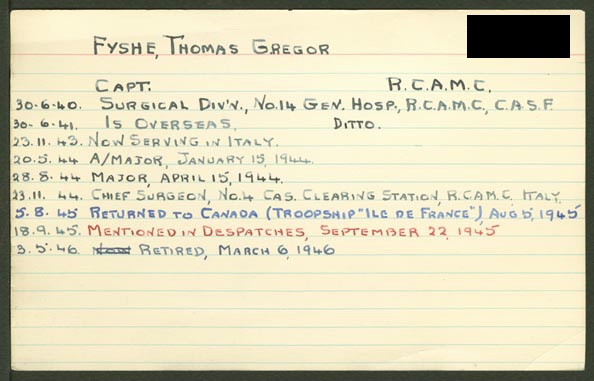 FYSHE, THOMAS GREGOR
CAPT. R.C.A.M.C.
30·6·40. SURGICAL DIV'N., No.14 GEN. HOSP., R.C.A.M.C., C.A.S.F.
30·6·41. IS OVERSEAS. DITTO.
23.11.43. NOW SERVING IN ITALY.
20.5.44 A/MAJOR, JANUARY 15, 1944.
28.8.44 MAJOR, APRIL 15, 1944.
23.11.44. CHIEF SURGEON, No.4 CAS. CLEARING STATION, R.C.A.M.C. ITALY.
5.8.45 RETURNED TO CANADA (TROOPSHIP "ILE DE FRANCE"), AUG 5, 1945
18.9.45. MENTIONED IN DESPATCHES, SEPTEMBER 22, 1945
3.5.46. RETIRED, MARCH 6, 1946